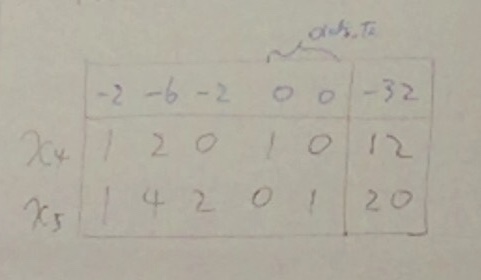 -2 -6 -2 0 0 -32
x4 1 2 0 1 0 12
x5 1 4 2 0 1 20